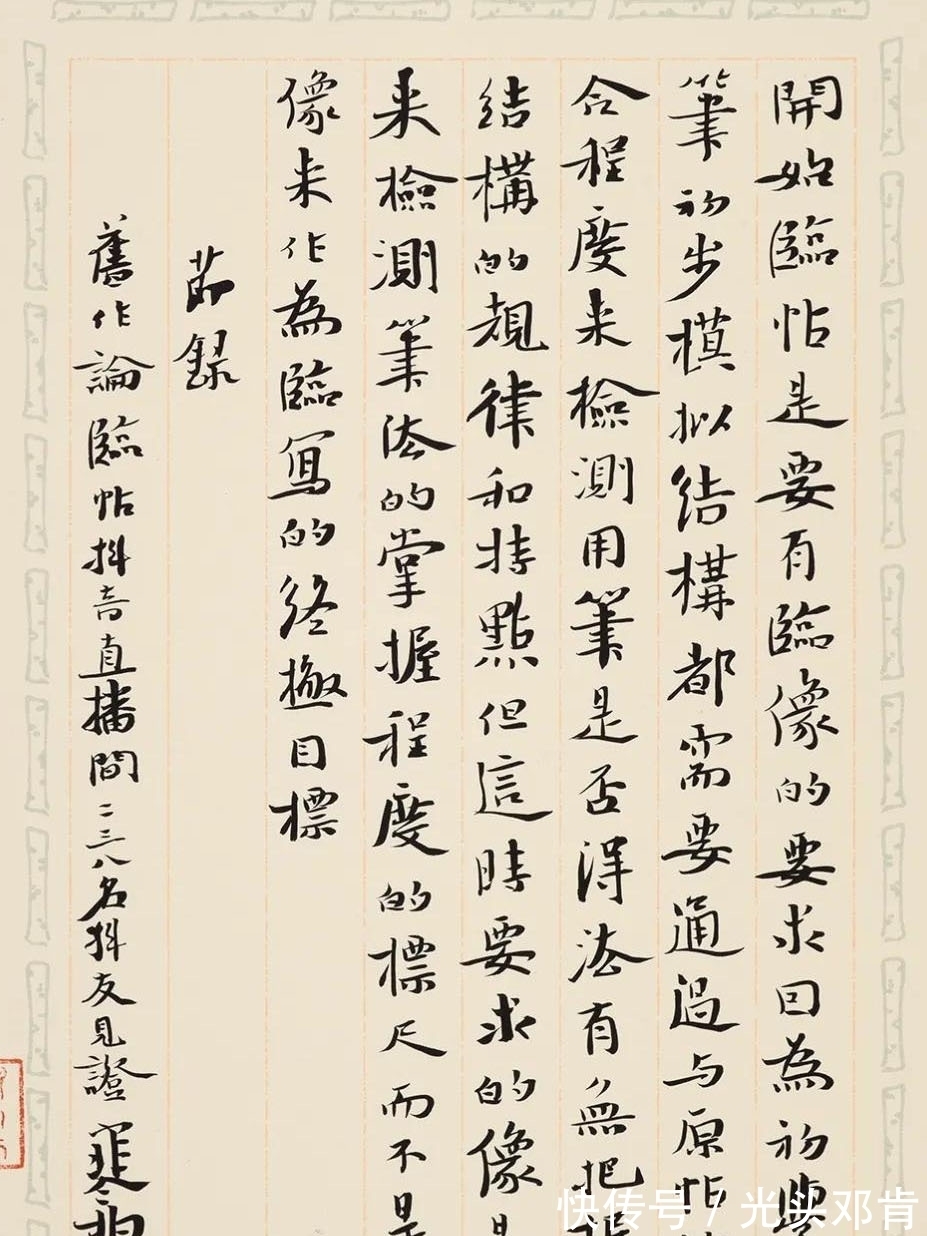 開始臨帖是要有臨像的要求因為初
筆初步模拟結構都需要通過与原帖
合程度来檢測用筆是否得法有無把
結構的規律和特點但這時要求的像是
来檢測筆法的掌握程度的標尺而不是
像来作為臨寫的终極目標
節錄
舊作論臨帖抖音直播間二三八名抖友見證
快传号 / 光头邓肯